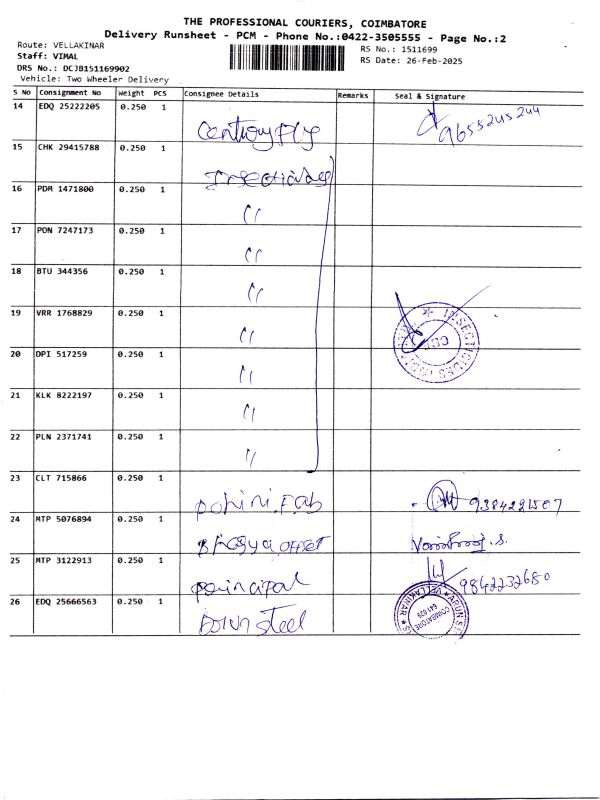 THE PROFESSIONAL COURIERS, COIMBATORE
Delivery Runsheet - PCM - Phone No.:0422-3505555 - Page No.:2
Route: VELLAKINAR
Staff: VIMAL
DRS No.: DCJB151169902
Vehicle: Two Wheeler Delivery
RS No.: 1511699
RS Date: 26-Feb-2025
S No Consignment No Weight PCS Consignee Details Remarks Seal & Signature
14 EDQ 25222205 0.250 1 Century Fly 9655245244
15 CHK 29415788 0.250 1 Insecticides
16 PDM 1471800 0.250 1 "
17 PON 7247173 0.250 1 "
18 BTU 344356 0.250 1 "
19 VRR 1768829 0.250 1 " INSECTICIDES
20 DPI 517259 0.250 1 "
21 KLK 8222197 0.250 1 "
22 PLN 2371741 0.250 1 "
23 CLT 715866 0.250 1 Fab
24 MTP 5076894 0.250 1 Bhagya OFFSET
25 MTP 3122913 0.250 1 Principal 9842232680
26 EDQ 25666563 0.250 1 Steel VELLAKINAR COIMBATORE